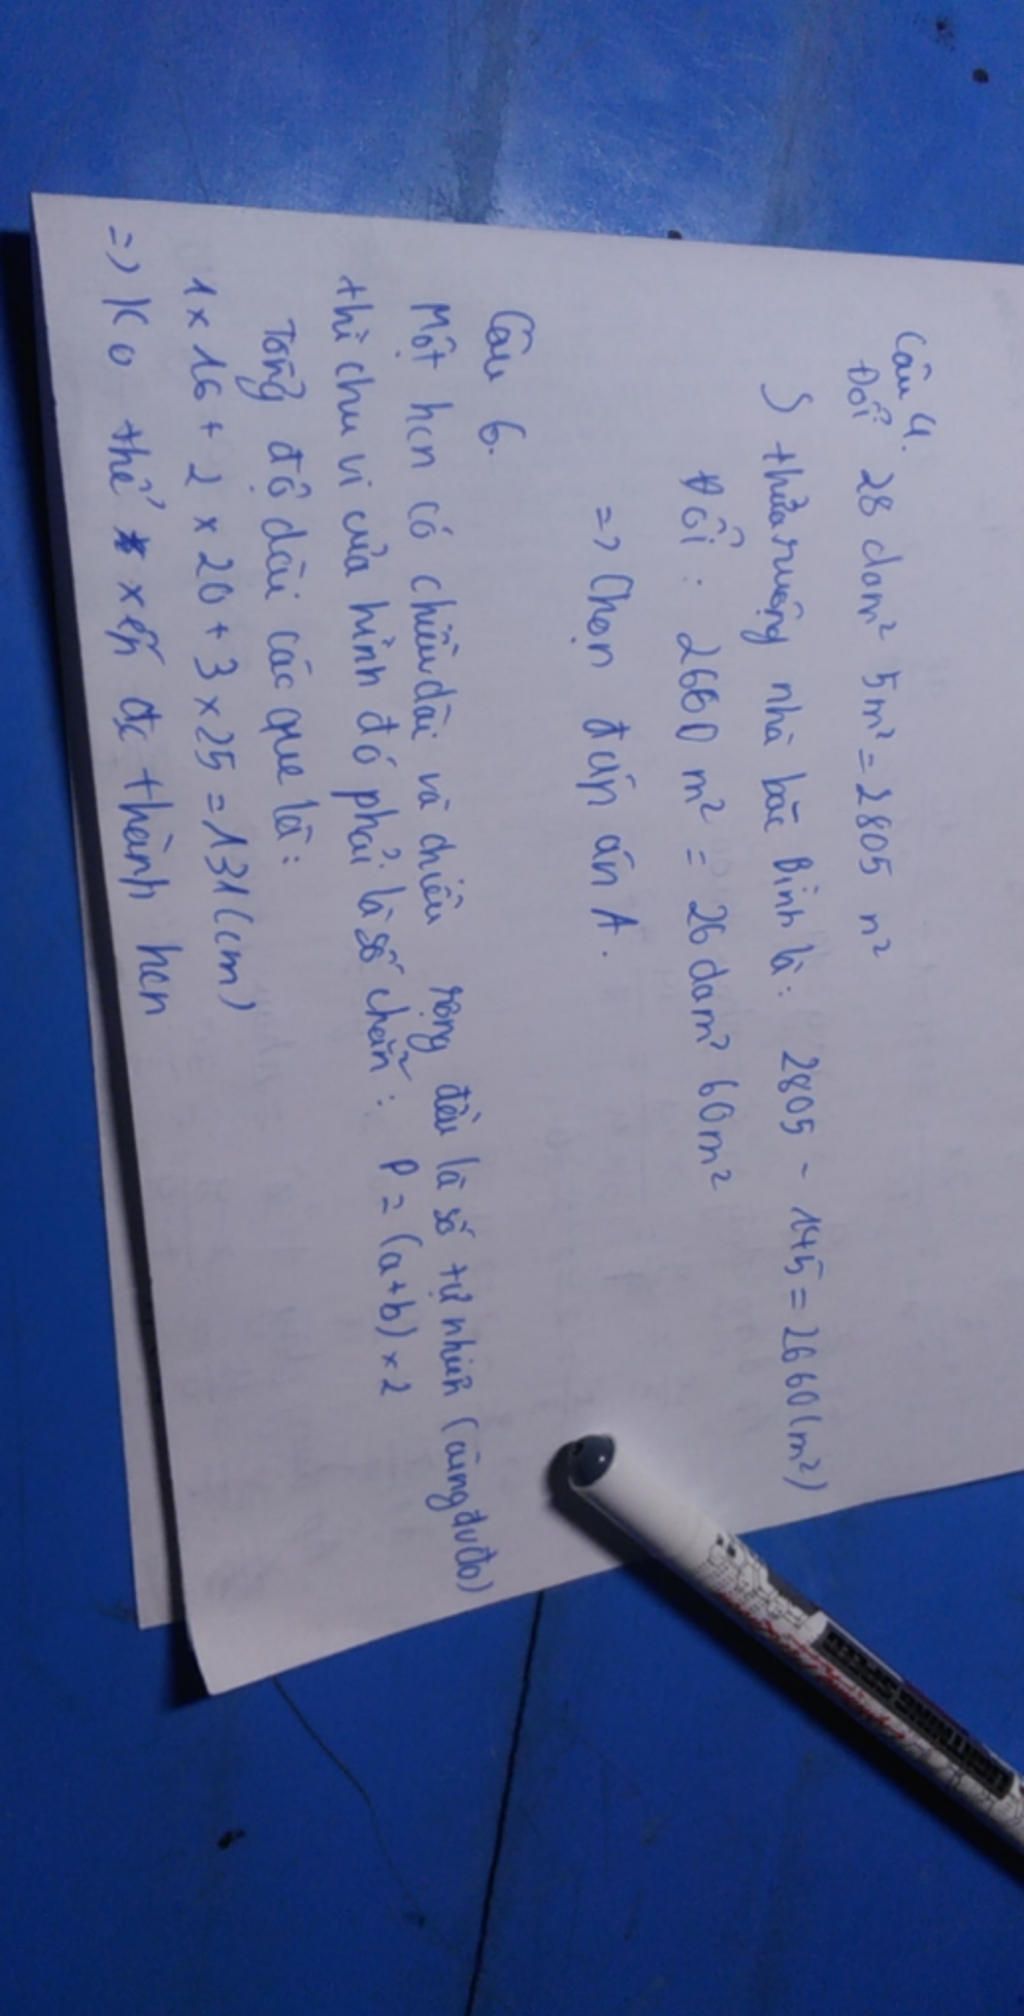 Câu 4.
Đổi 28 dam² 5m² = 2805 m²
S thửa ruộng nhà bác Bình là: 2805 - 145 = 2660 (m²)
Đổi: 2660 m² = 26 dam² 60m²
=> Chọn đáp án A.
Câu 6.
Một hcn có chiều dài và chiều rộng đều là số tự nhiên (cùng đv đo)
thì chu vi của hình đó phải là số chẵn: P = (a+b) × 2
Tổng độ dài các que là:
1 × 16 + 2 × 20 + 3 × 25 = 131 (cm)
=> Ko thể xếp đc thành hcn